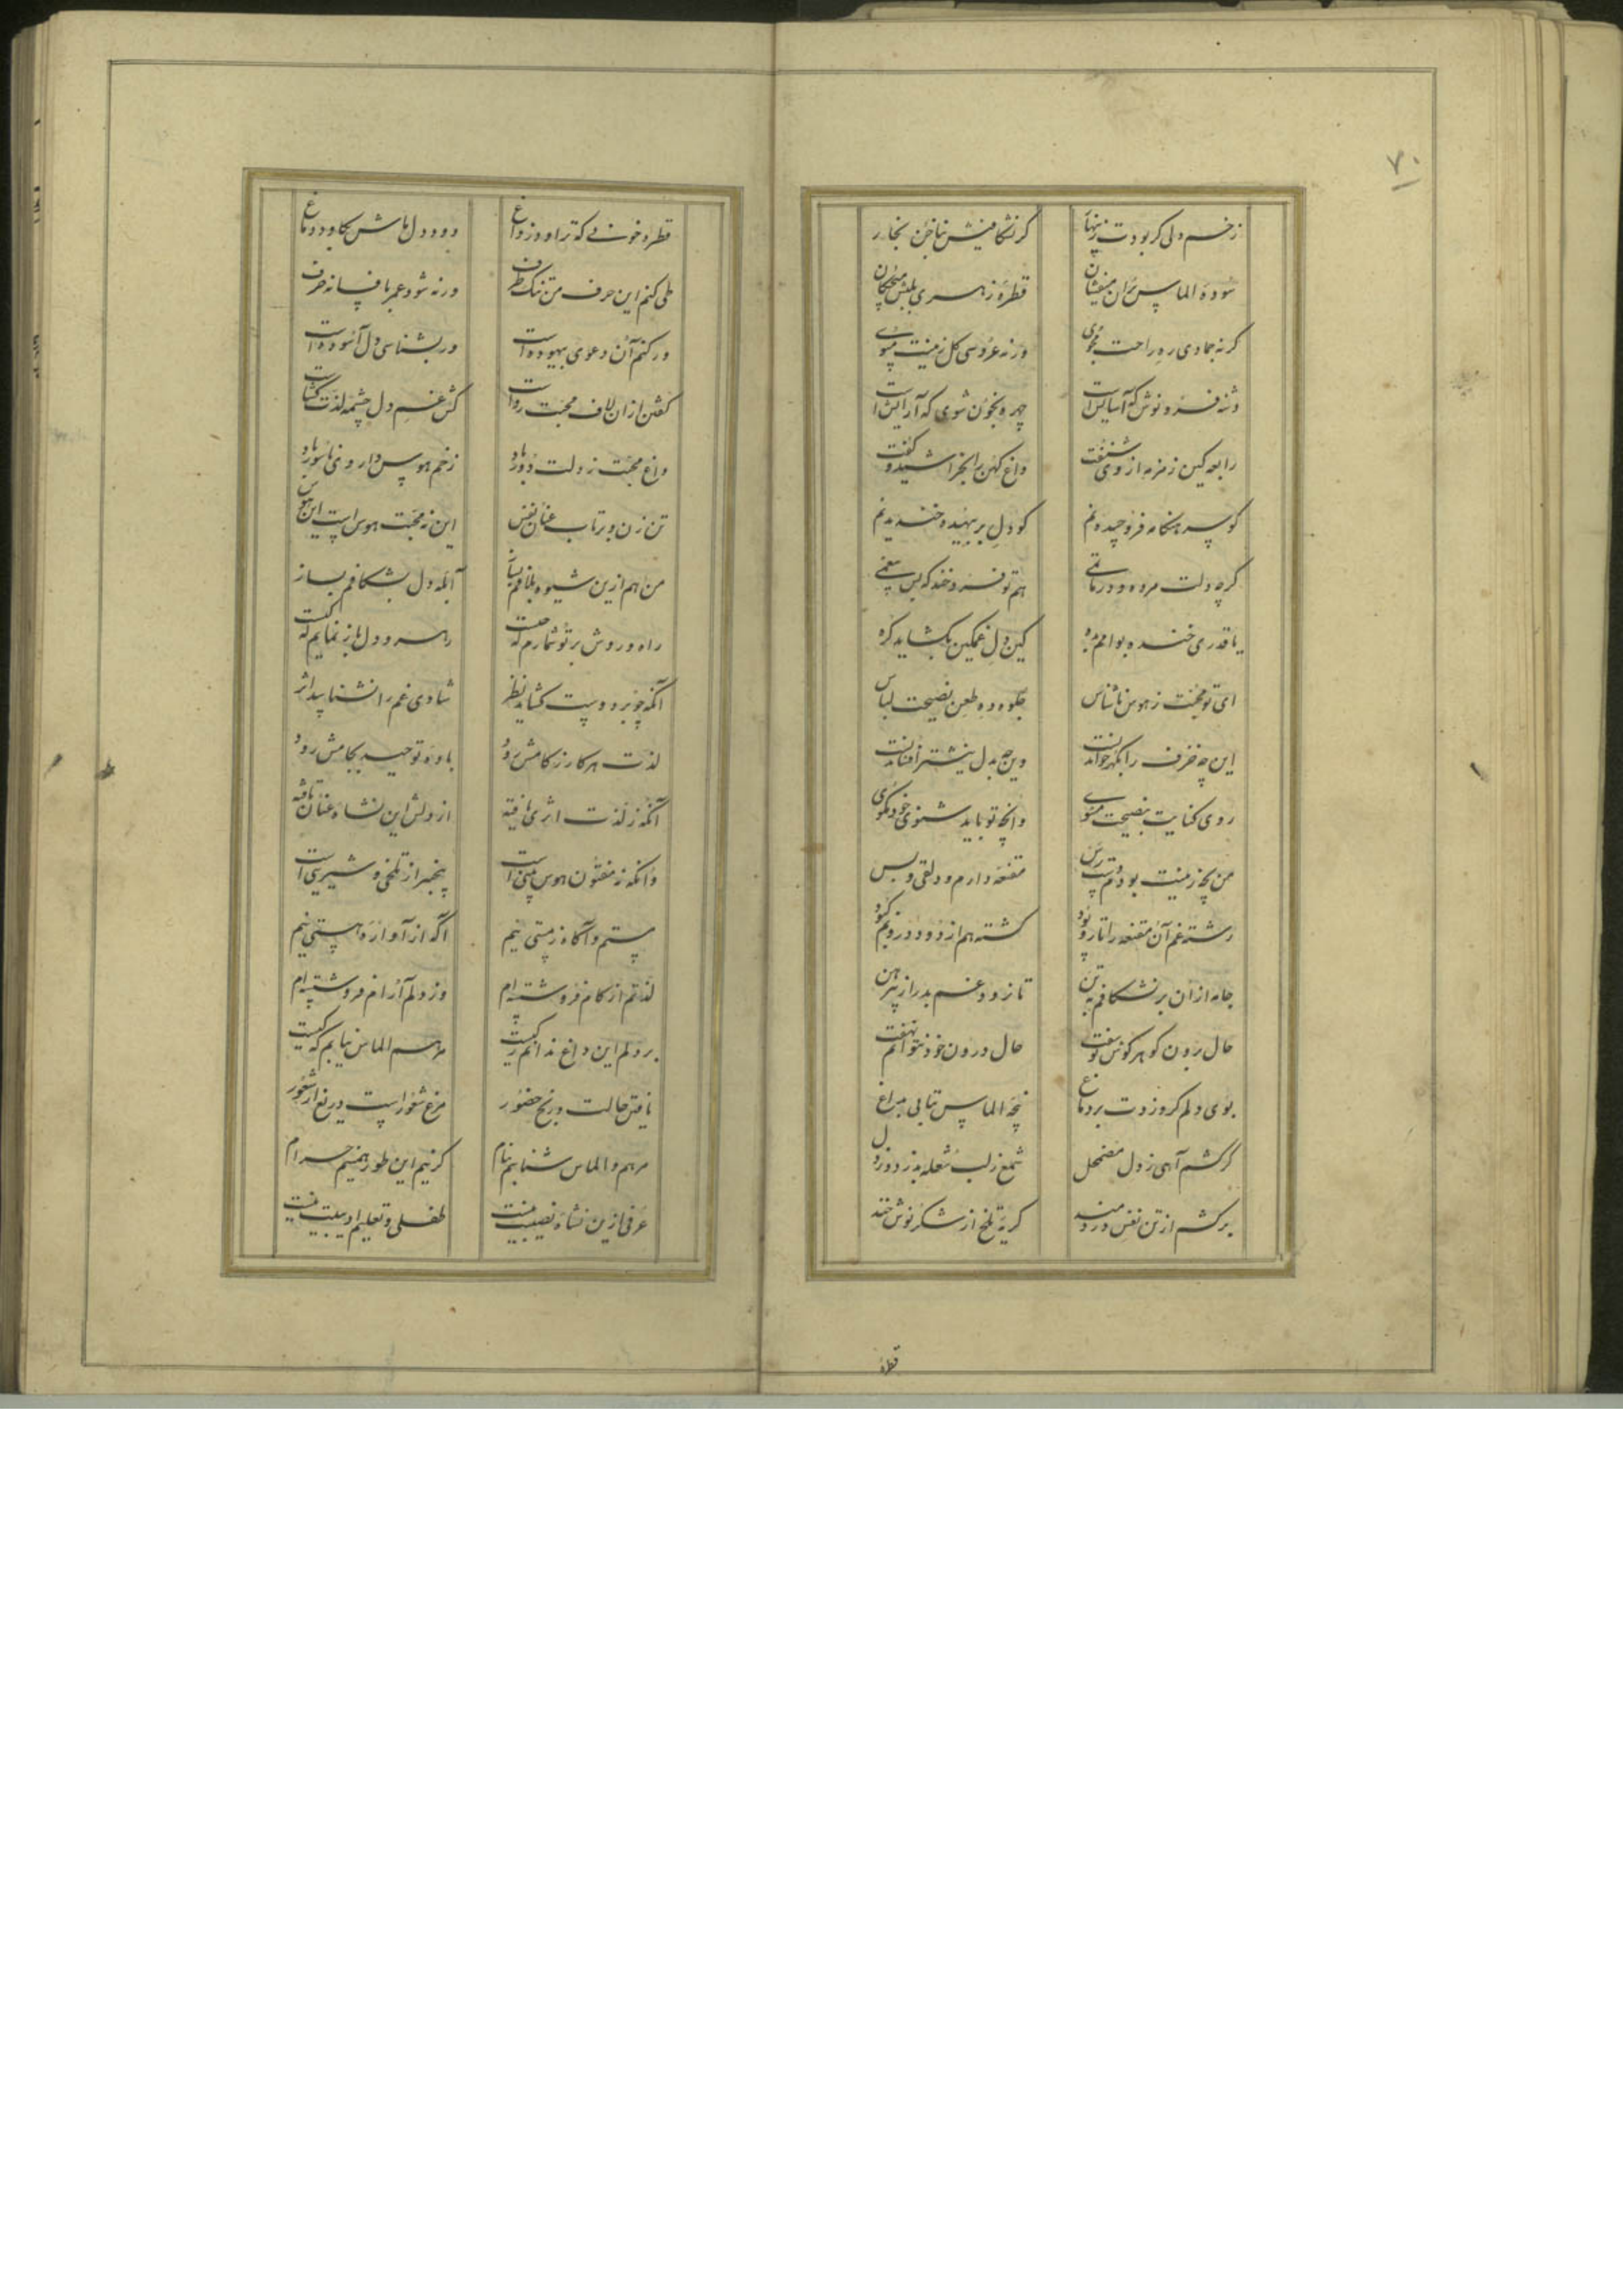 ۷۰
زخم دلی کر بودت زینهار کرنشکافیش بناخن بخار
سوده الماس بران میفشان قطره زهری بلبش میچکان
کرنه جمادی ره راحت مجوی ورنه عروسی کل زینت مبوی
دشنه فرو نوش که آسایش است چهره بخون شوی که آرایش است
رابعه کین زمزمه از وی شنفت داغ کهن را بخراشید و کفت
کو سر هنکامه فرو چیدنم کو دل بر بیهده خندیدنم
کرچه دلت مرده و در ماتمی هم تو فرو خند که بس بیغمی
یا قدری خنده بوامم بده کین دل غمکین بکشاید کره
ای تو محبت ز هوس ناشناس جلوه ده طعن نصیحت لباس
این چه خزف را بکهر خواندنست وین چه بدل نیشتر افشاندنست
روی کنایت بنصیحت مشوی وانچه تو باید شنوی خود مکوی
من نه بزینت بودم دست رس مقنعه دارم و دلقی و بس
رشته غم آن مقنعه را تار و پود کشته هم از دود درونم کبود
جامه ازان برنشکافم بتن تا نرود غم بدر از پیرهن
حال برون کو هر کوش تو سفت حال درون خود نتوانم نهفت
بوی دلم کر وزدت بر دماغ پنجه الماس بتابی بداغ
کر کشم آهی ز دل مضمحل شمع ز لب شعله بدزدد ز دل
برکشم از تن نفس دردمند کریه تلخ از شکر نوش خند
قطره
قطره خونی که تراود ز داغ دود دل ماش بکاود دماغ
طی کنم این حرف متن تنک ظرف ورنه شود عمر بافسانه صرف
ور کنم آن دعوی بیهوده است ور بشناسی دل آسوده است
کفتن ازان لاف محبت رواست کش غم دل چشمه لذت کشاست
داغ محبت ز دلت دور باد زخم هوس داروی ناسور باد
تن زن و برتاب عنان نفس این نه محبت هوس است این هوس
من هم ازین شیوه بلافم بساز آبله دل بشکافم بساز
راه و روش بر تو شمارم که چیست راهرو دل باز نمایم که کیست
آنکه چو بر دوست کشاید نظر شادی غم را نشناسد اثر
لذت هر کار ز کامش رود باده توحید بجامش رود
آنکه ز لذت اثری یافته از دلش این نشاه عنان تافته
وانکه نه مفتون هوس بینی است بیخبر از تلخی و شیرینی است
مستم و آکاه ز مستی نیم آکه از آوازه هستی نیم
لذتم از کام فروشسته‌ام وز دلم آرام فروشسته‌ام
بر دلم این داغ ندانم ز کیست مرهم الماس نیابم که کیست
یافتن حالت و رنج حضور فرع شعور است دریغ از شعور
مرهم و الماس شناسم بنام کر نیم این طور نیم حرام
عرفی ازین نشاه نصیبیت نیست طفلی و تعلیم ادیبیت نیست